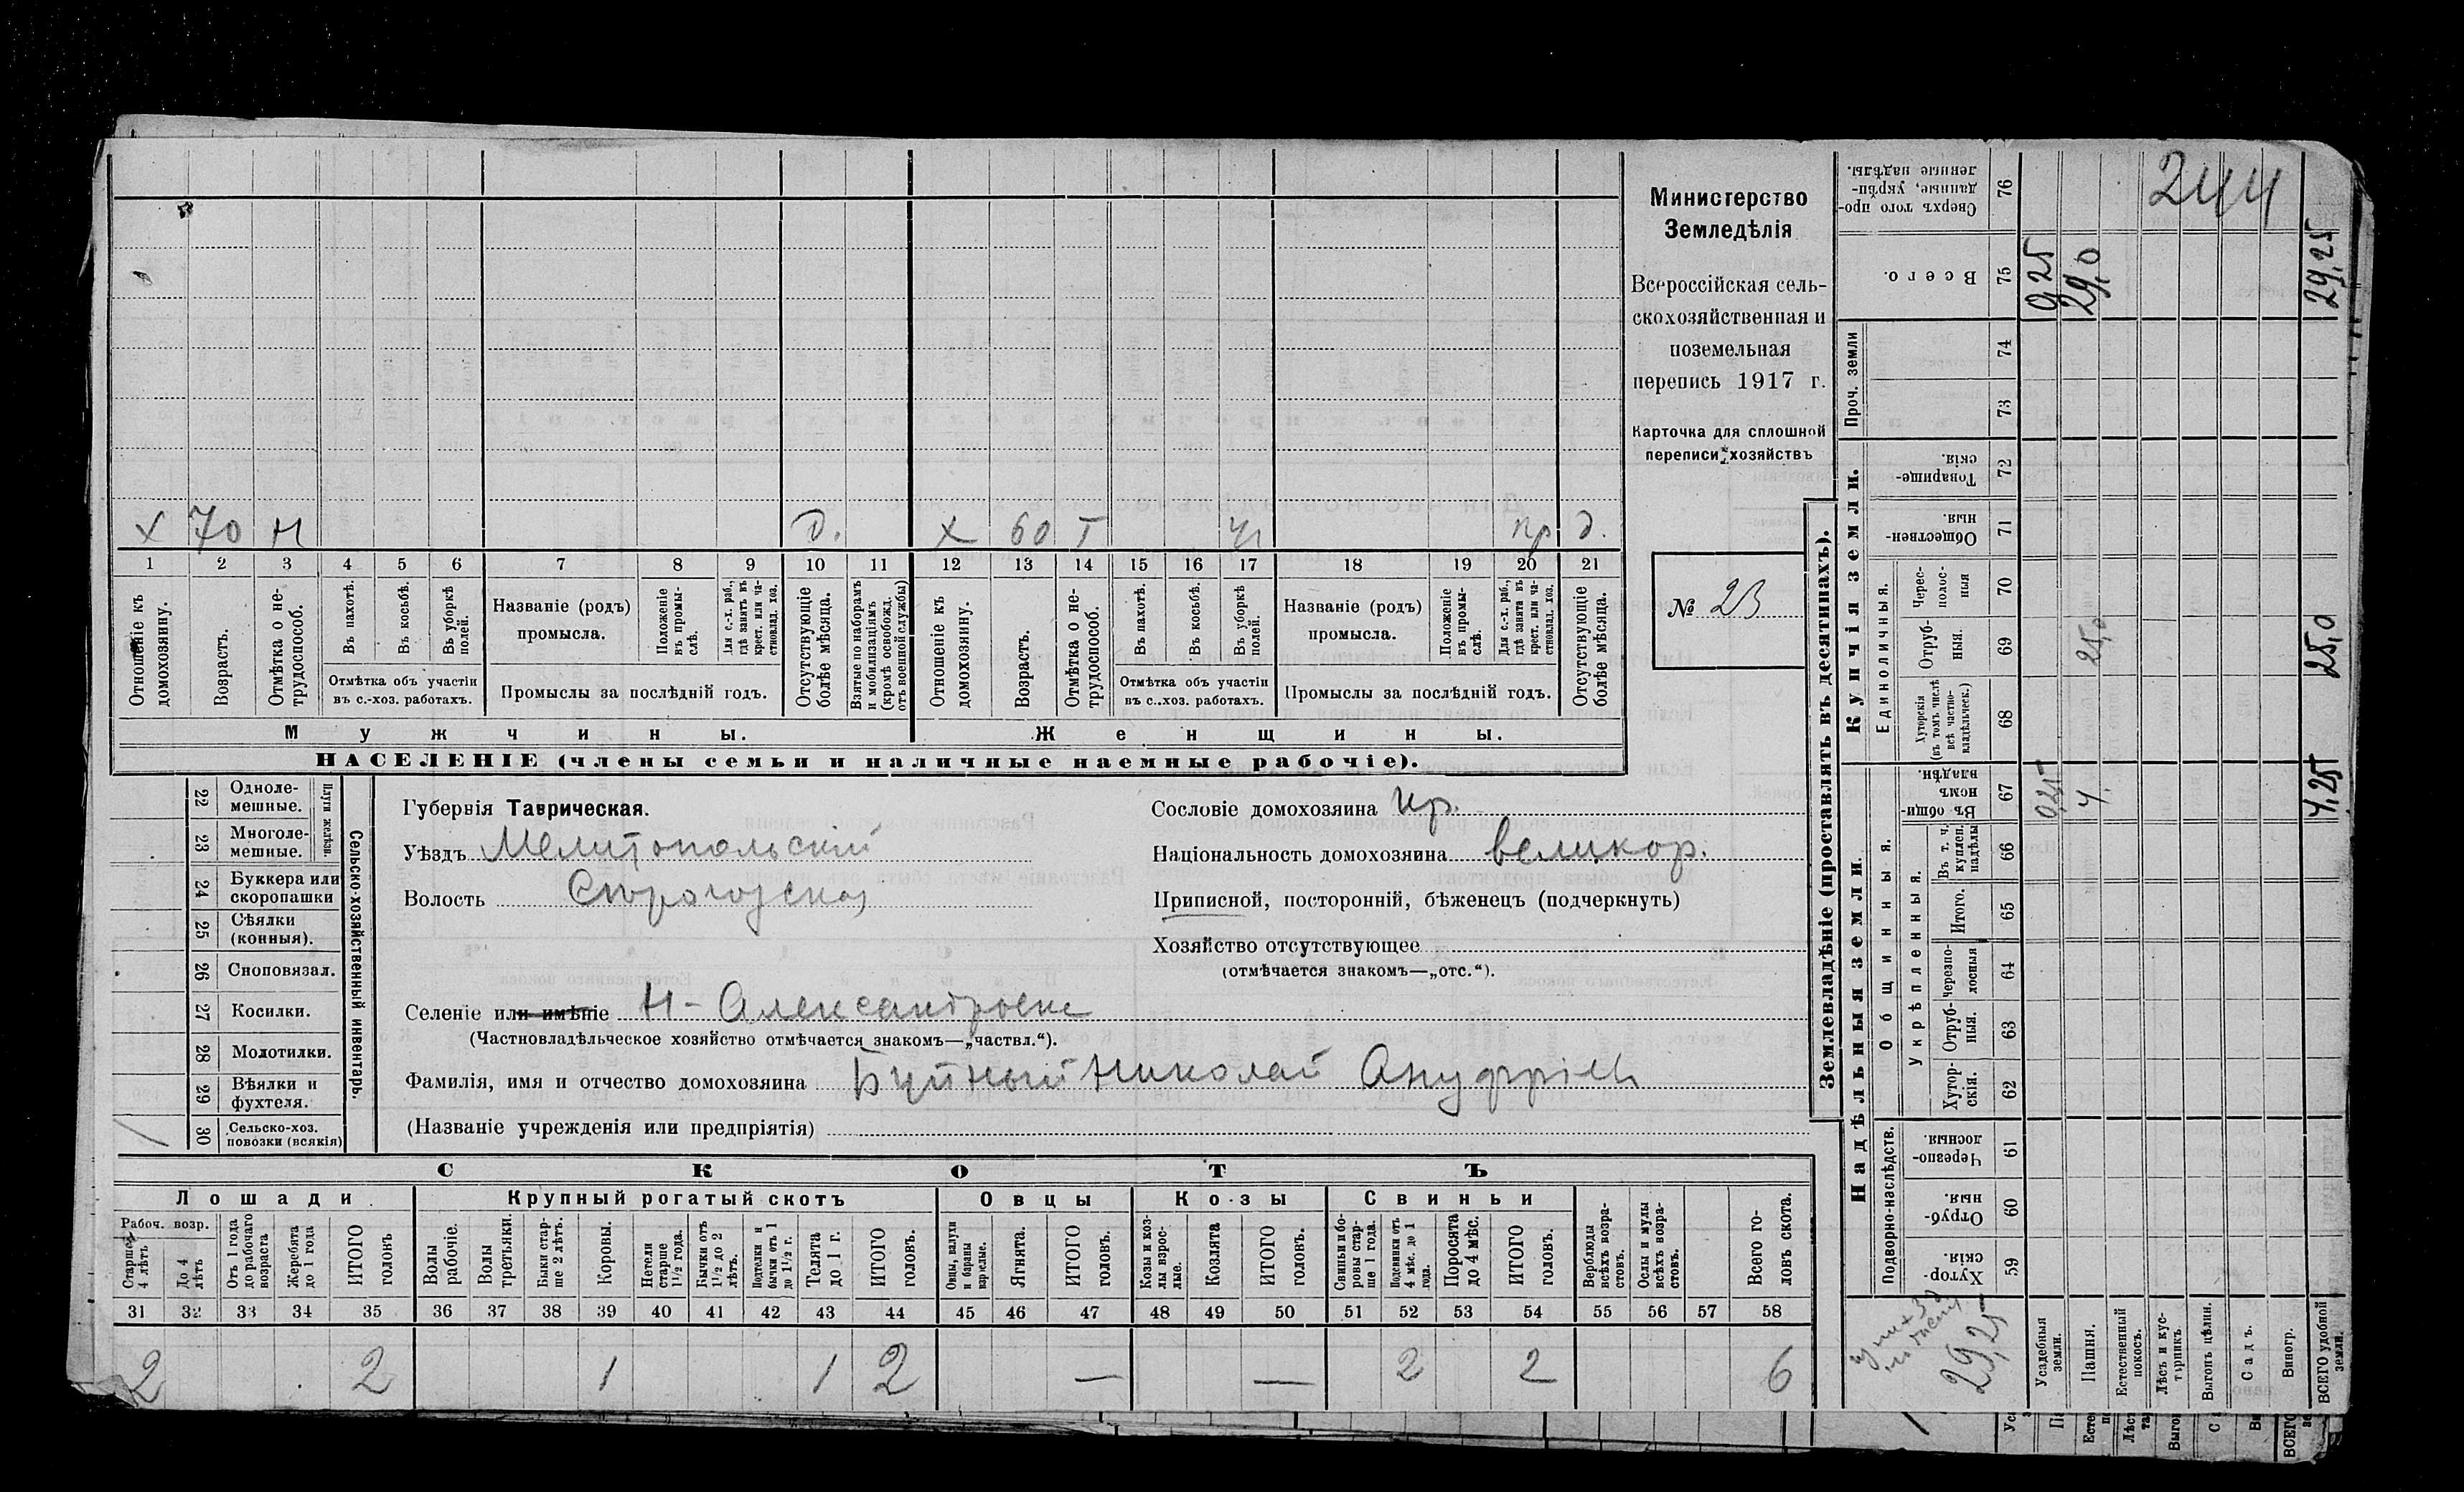 244
Министерство
Земледѣлія
Всероссійская сель-
скохозяйственная и
поземельная
перепись 1917 г.
Карточка для сплошной
переписи хозяйствъ
№ 23
х 70 н д. х 60 т пр д.
1 2 3 4 5 6 7 8 9 10 11 12 13 14 15 16 17 18 19 20 21
Отношеніе къ домохозяину.
Возрастъ.
Отмѣтка о не-трудоспособ.
Въ пахотѣ.
Въ косьбѣ.
Въ уборкѣ полей.
Отмѣтка объ участіи
въ с.-хоз. работахъ.
Названіе (родъ)
промысла.
Положеніе въ промы-слѣ.
Для с.-х. раб., гдѣ занятъ въ крест. или ча-стновлад. хоз.
Промыслы за послѣдній годъ.
Отсутствующіе болѣе мѣсяца.
Взятые по наборамъ и мобилизаціямъ (кромѣ освобожд. отъ военной службы)
Отношеніе къ домохозяину.
Возрастъ.
Отмѣтка о не-трудоспособ.
Въ пахотѣ.
Въ косьбѣ.
Въ уборкѣ полей.
Отмѣтка объ участіи
въ с..хоз. работахъ.
Названіе (родъ)
промысла.
Положеніе въ промы-слѣ.
Для с.-х. раб., гдѣ занята въ крест. или ча-стновлад. хоз.
Промыслы за послѣдній годъ.
Отсутствующіе болѣе мѣсяца.
Мужчины.
Женщины.
НАСЕЛЕНІЕ (члены семьи и наличные наемные рабочіе).
Сельско-хозяйственный инвентарь.
Плуги желѣзн.
22 Одноле-мешные.
23 Многоле-мешные.
24 Буккера или скоропашки
25 Сѣялки (конныя).
26 Сноповязал.
27 Косилки.
28 Молотилки.
29 Вѣялки и фухтеля.
30 Сельско-хоз. повозки (всякія)
Губернія Таврическая.
Уѣздъ Мелитопольскій
Волость
Сословіе домохозяина кр.
Національность домохозяина великор.
Приписной, посторонній, бѣженецъ (подчеркнуть)
Хозяйство отсутствующее
(отмѣчается знакомъ—„отс.“).
Селеніе или имѣніе Н-Александровка
(Частновладѣльческое хозяйство отмѣчается знакомъ—„частвл.“).
Фамилія, имя и отчество домохозяина Буйный Николай Ануфріев
(Названіе учрежденія или предпріятія)
СКОТЪ
Лошади
Крупный рогатый скотъ
Овцы
Козы
Свиньи
Рабоч. возр.
Старше 4 лѣтъ
До 4 лѣтъ
Отъ 1 года до рабочаго возраста
Жеребята до 1 года
ИТОГО головъ
Волы рабочіе.
Волы третьяки.
Быки стар-ше 2 лѣтъ.
Коровы.
Нетели старше 1½ года.
Бычки отъ 1½ до 2 лѣтъ.
Подтелки и бычки отъ 1 до 1½ г.
Телята до 1 г.
ИТОГО головъ.
Овцы, валухи и бараны взрослые.
Ягнята.
ИТОГО головъ.
Козы и коз-лы взрос-лые.
Козлята
ИТОГО головъ.
Свиньи и бо-ровы стар-ше 1 года.
Подсвинки отъ 4 мѣс. до 1 года.
Поросята до 4 мѣс.
ИТОГО головъ.
Верблюды всѣхъ возра-стовъ.
Ослы и мулы всѣхъ возра-стовъ.
Всего го-ловъ скота.
31 32 33 34 35 36 37 38 39 40 41 42 43 44 45 46 47 48 49 50 51 52 53 54 55 56 57 58
2 2 1 1 2 — — 2 2 6
Землевладѣніе (проставлять въ десятинахъ).
Надѣльныя земли.
Купчія земли.
Проч. земли
Подворно-наслѣдств.
Общинныя.
Укрѣпленныя.
Единоличныя.
Хутор-скія. 59
Отруб-ныя. 60
Черезпо-лосныя. 61
Хутор-скія. 62
Отруб-ныя. 63
Черезпо-лосныя 64
Итого. 65
Въ т. ч. куплен. надѣлы 66
Въ общин-номъ владѣн. 67
Хуторскія (въ томъ числѣ всѣ частно-владѣльческ.) 68
Отруб-ныя. 69
Черес-полос-ныя 70
Обществен-ныя 71
Товарище-скія. 72
73
74
Всего. 75
Сверхъ того про-данные, укрѣп-ленные надѣлы. 76
Усадебныя земли. 0,25 0,25
Пашня. 4. 25,0 29,0
Естественный покосъ.
Лѣсъ и кус-тарникъ.
Выгонъ цѣлин.
Садъ.
Виногр.
ВСЕГО удобной земли. 4,25 25,0 29,25
29,25